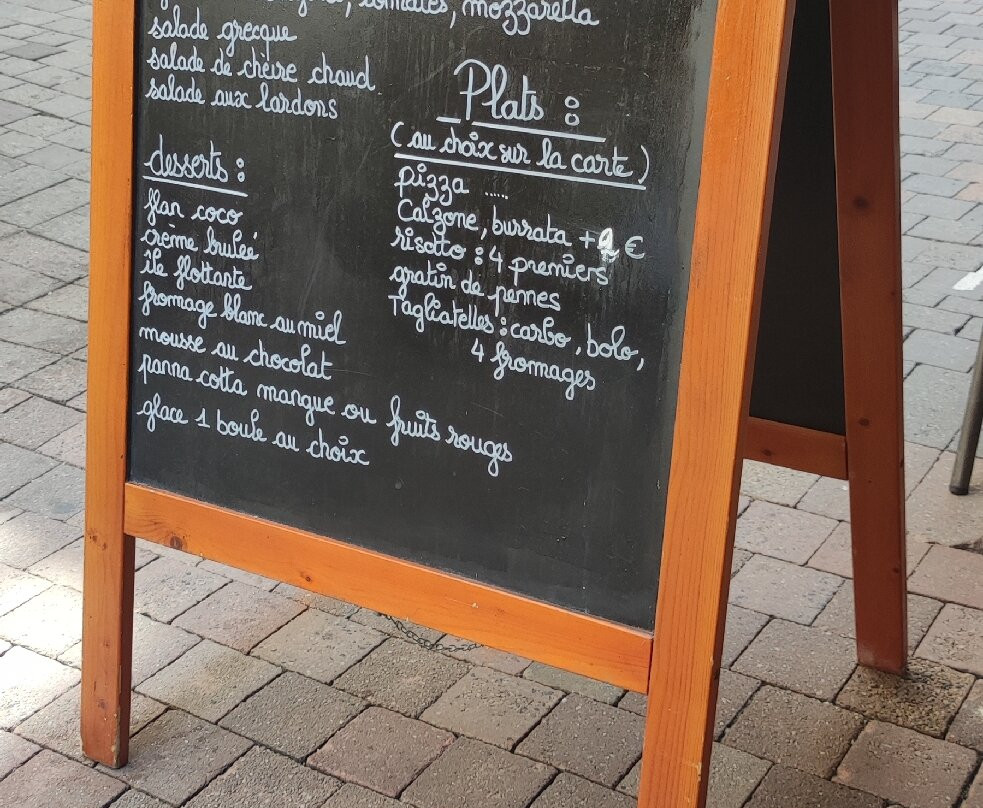 tomates, mozzarella
salade grecque
salade de chèvre chaud
salade aux lardons
desserts :
flan coco
crème brulée
île flottante
fromage blanc au miel
mousse au chocolat
panna cotta mangue ou fruits rouges
glace 1 boule au choix
Plats :
(au choix sur la carte)
pizza .....
Calzone, burrata + 2 €
risotto : 4 premiers
gratin de pennes
Tagliatelles : carbo, bolo,
4 fromages